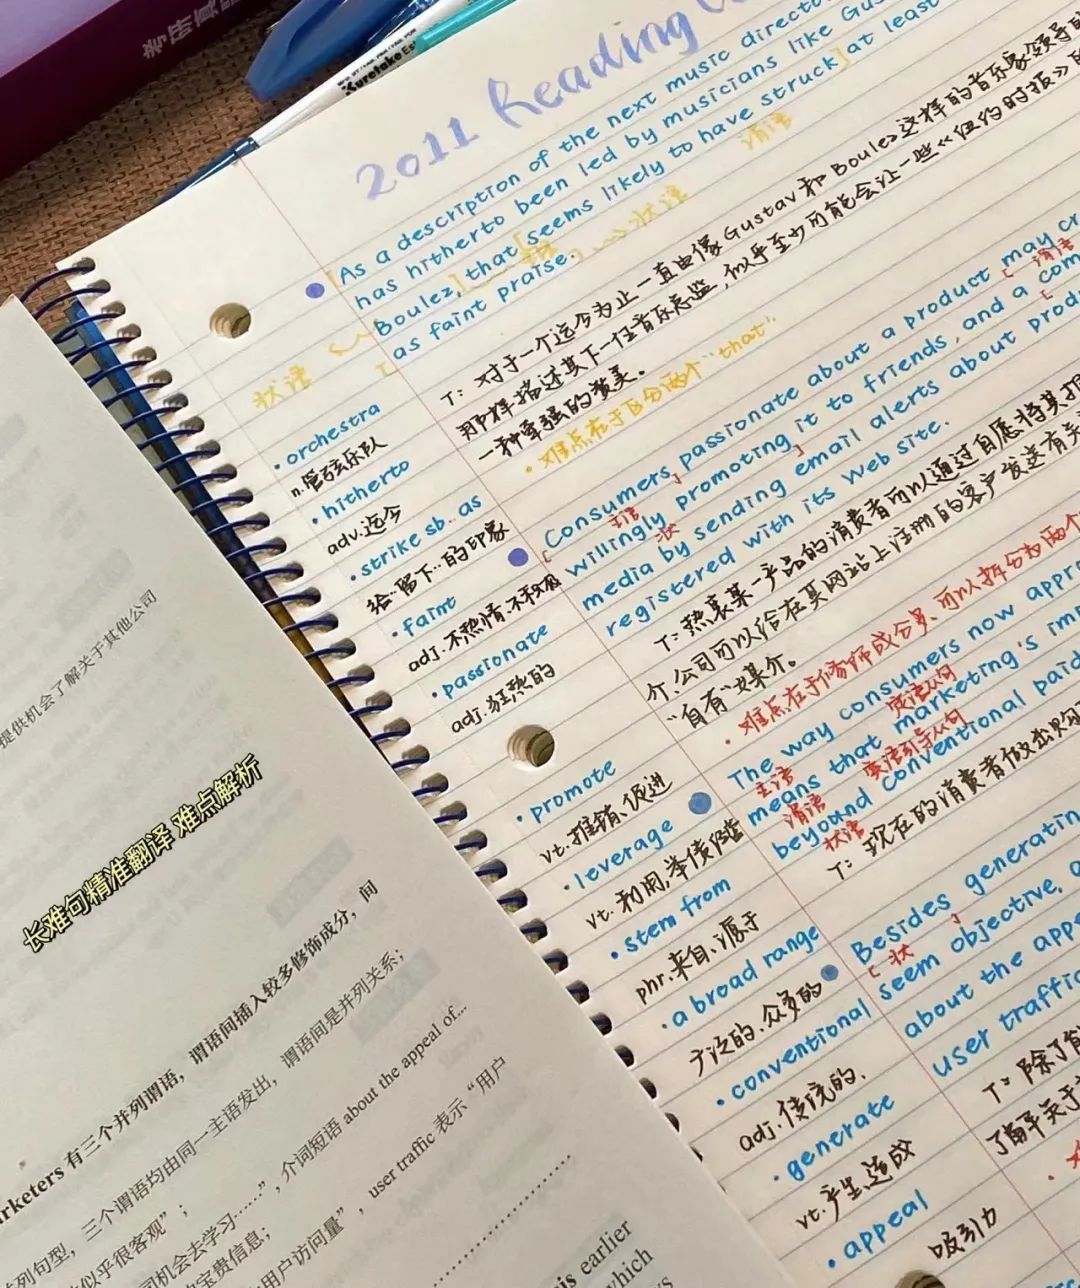 考研真
Kuretake
2011 Reading
As a description of the next music directo
has hitherto been led by musicians like Gus
Boulez, that seems likely to have struck at least
as faint praise.
谓语
状语
状语
T: 对于一个迄今为止一直由像Gustav和Boulez这样的音乐家领导的
那样描述其下一任音乐总监,似乎至少可能会让一些《纽约时报》的
一种牵强的赞美。
·难点在于区分两个"that".
·orchestra
n.管弦乐队
·hitherto
adv.迄今
·strike sb. as
给·留下··的印象
·faint
adj.不热情·不积极
·passionate
adj.狂热的
Consumers passionate about a product may cr
谓语
willingly promoting it to friends, and a com
主语
状
media by sending email alerts about produ
registered with its Web site.
T: 热衷某一产品的消费者可以通过自愿将其推
介.公司可以给在某网站上注册的客户发送有关
"自有"媒介。
·难点在于修饰成分多、可以拆分为两个
The way consumers now appro
主语
定语从句
means that marketing's im
谓语
宾语引导从句
beyound conventional paid
状语
T: 现在的消费者做出购
·promote
vt.推销、促进
·leverage
vt.利用,举债经营
·stem from
phr.来自、源于
·a broad range
广泛的.众多的
·conventional
adj.传统的.
·generate
vt.产生.造成
·appeal
吸引力
Besides generatin
状
seem objective,
about the appe
user traffic
T: 除了
了解关于
提供机会了解关于其他公司
长难句精准翻译 难点解析
rketers 有三个并列谓语，谓语间插入较多修饰成分，间
列句型，三个谓语均由同一主语发出，谓语间是并列关系；
似乎很客观”；
司机会去学习……”，介词短语 about the appeal of...
宝贵信息；
用户访问量”，user traffic 表示“用户
is earlier
which